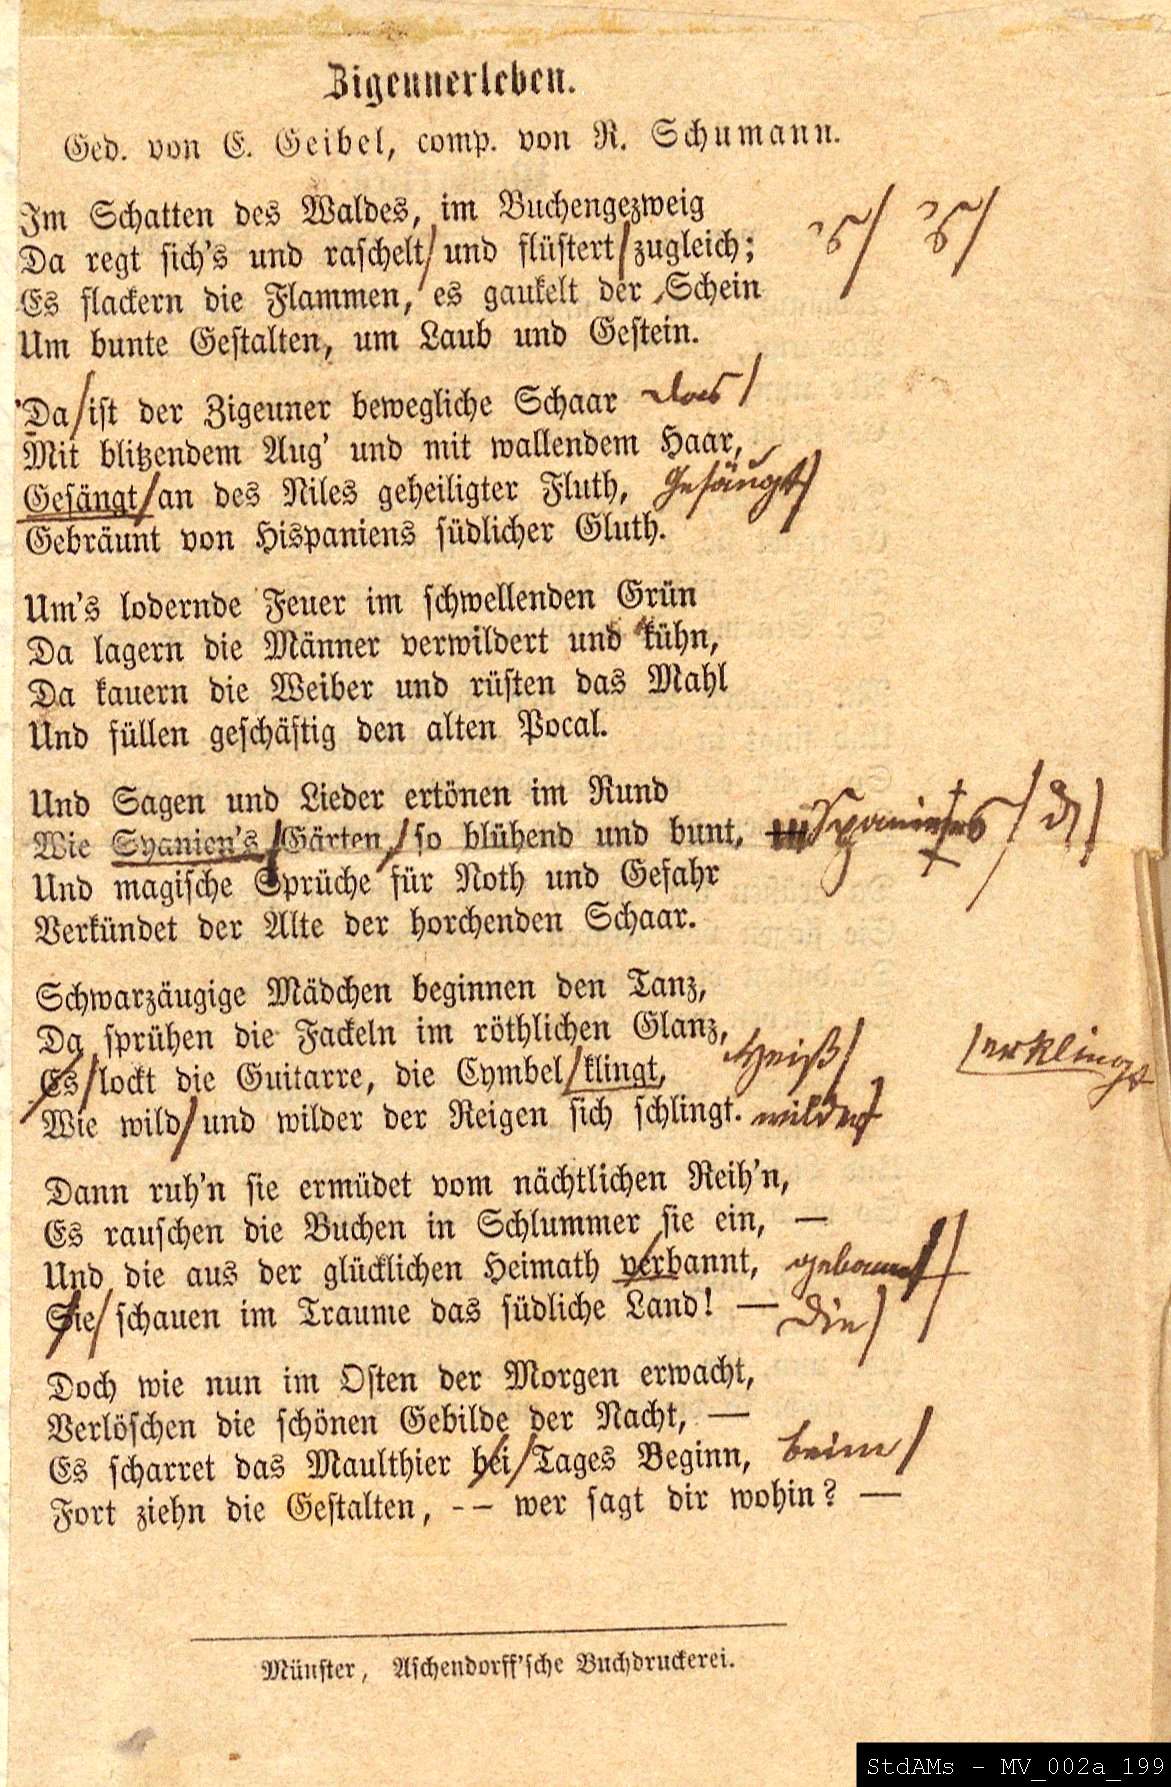 Zigeunerleben.
Ged. von E. Geibel, comp. von R. Schumann.
Im Schatten des Waldes, im Buchengezweig
Da regt sich's und raschelt/ und flüstert/ zugleich; 's/ 's/
Es flackern die Flammen, es gaukelt der Schein
Um bunte Gestalten, um Laub und Gestein.
Da/ ist der Zigeuner bewegliche Schaar das/
Mit blitzendem Aug' und mit wallendem Haar,
Gesängt/ an des Niles geheiligter Fluth, Gesäugt/
Gebräunt von Hispaniens südlicher Gluth.
Um's lodernde Feuer im schwellenden Grün
Da lagern die Männer verwildert und kühn,
Da kauern die Weiber und rüsten das Mahl
Und füllen geschäftig den alten Pocal.
Und Sagen und Lieder ertönen im Rund
Wie Syanien's/ Gärten/ so blühend und bunt, Spaniens/
Und magische Sprüche für Noth und Gefahr
Verkündet der Alte der horchenden Schaar.
Schwarzäugige Mädchen beginnen den Tanz,
Da sprühen die Fackeln im röthlichen Glanz,
Es/ lockt die Guitarre, die Cymbel/ klingt, Heiß/ /erklingt
Wie wild/ und wilder der Reigen sich schlingt. wilder/
Dann ruh'n sie ermüdet vom nächtlichen Reih'n,
Es rauschen die Buchen in Schlummer sie ein, —
Und die aus der glücklichen Heimath verbannt, gebannt/
Sie/ schauen im Traume das südliche Land! — Die/
Doch wie nun im Osten der Morgen erwacht,
Verlöschen die schönen Gebilde der Nacht, —
Es scharret das Maulthier bei/ Tages Beginn, beim/
Fort ziehn die Gestalten, -- wer sagt dir wohin? —
Münster, Aschendorff'sche Buchdruckerei.
StdAMs - MV_002a_199